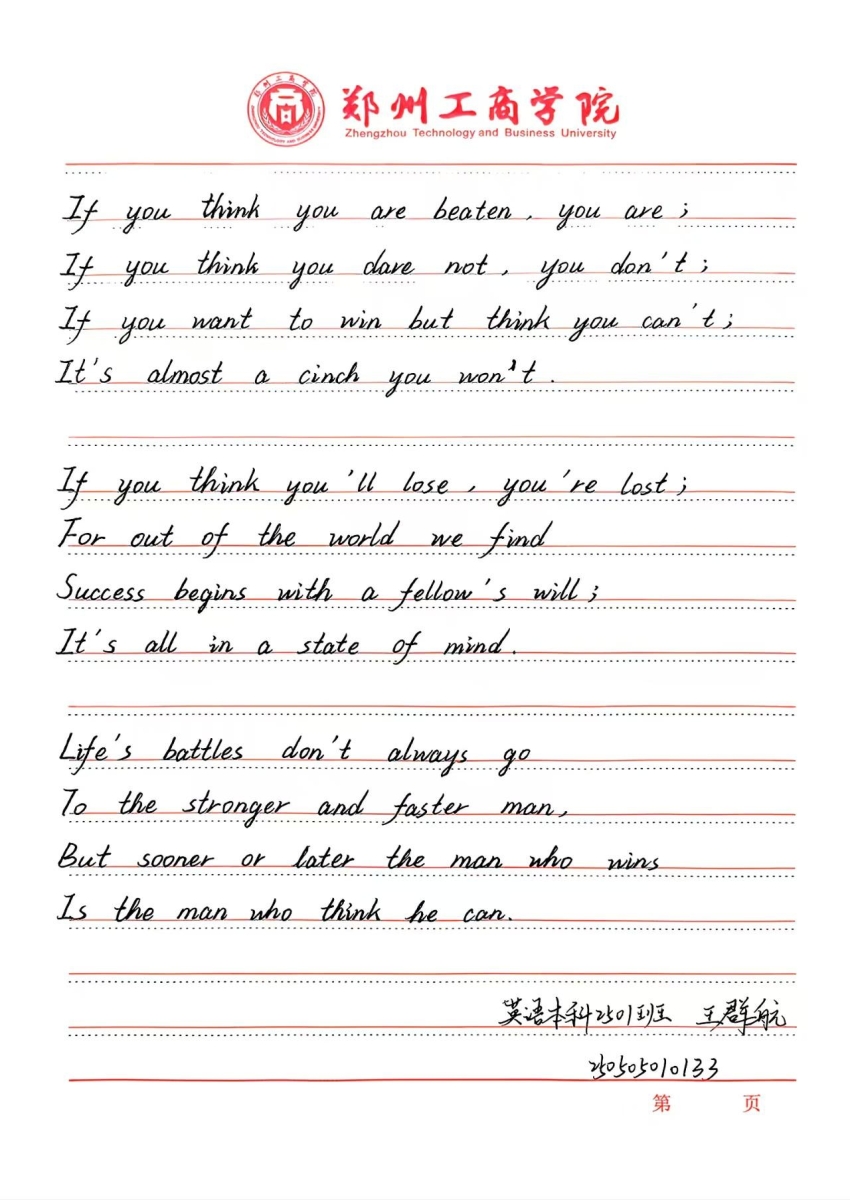 郑州工商学院
Zhengzhou Technology and Business University
If you think you are beaten, you are;
If you think you dare not, you don't;
If you want to win but think you can't;
It's almost a cinch you won't.
If you think you'll lose, you're lost;
For out of the world we find
Success begins with a fellow's will;
It's all in a state of mind.
Life's battles don't always go
To the stronger and faster man,
But sooner or later the man who wins
Is the man who think he can.
英语本科2501班 王群航
250505010133
第 页